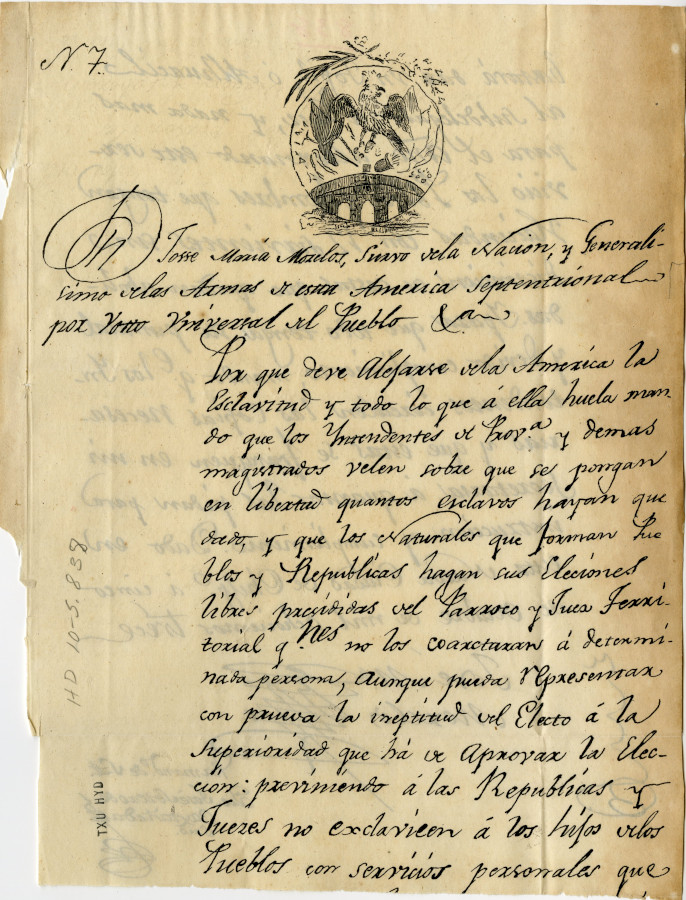 N. 7.
Dn Josse Maria Morelos, Siervo dela Nacion, y Generali-
simo delas Armas de esta America Septentrional
por Votto Vniversal del Pueblo &a
Por que deve Alejarse dela America la
Esclavitud y todo lo que á ella huela man-
do que los Yntendentes de Prov.a y demas
magistrados velen sobre que se pongan
en libertad quantos esclavos hayan que
dado, y que los Naturales que forman Pue
blos y Republicas hagan sus Eleciones
libres presididas del Parroco y Juez Terri-
torial q.nes no los coarctaran á determi-
nada persona, aunque pueda representar
con prueva la ineptitud del Electo á la
Superioridad que há de Aprovar la Elec-
ción: previniendo á las Republicas y
Juezes no exclavicen á los hijos delos
Pueblos con servicios personales que
HD 10-5.838
TXU HYD